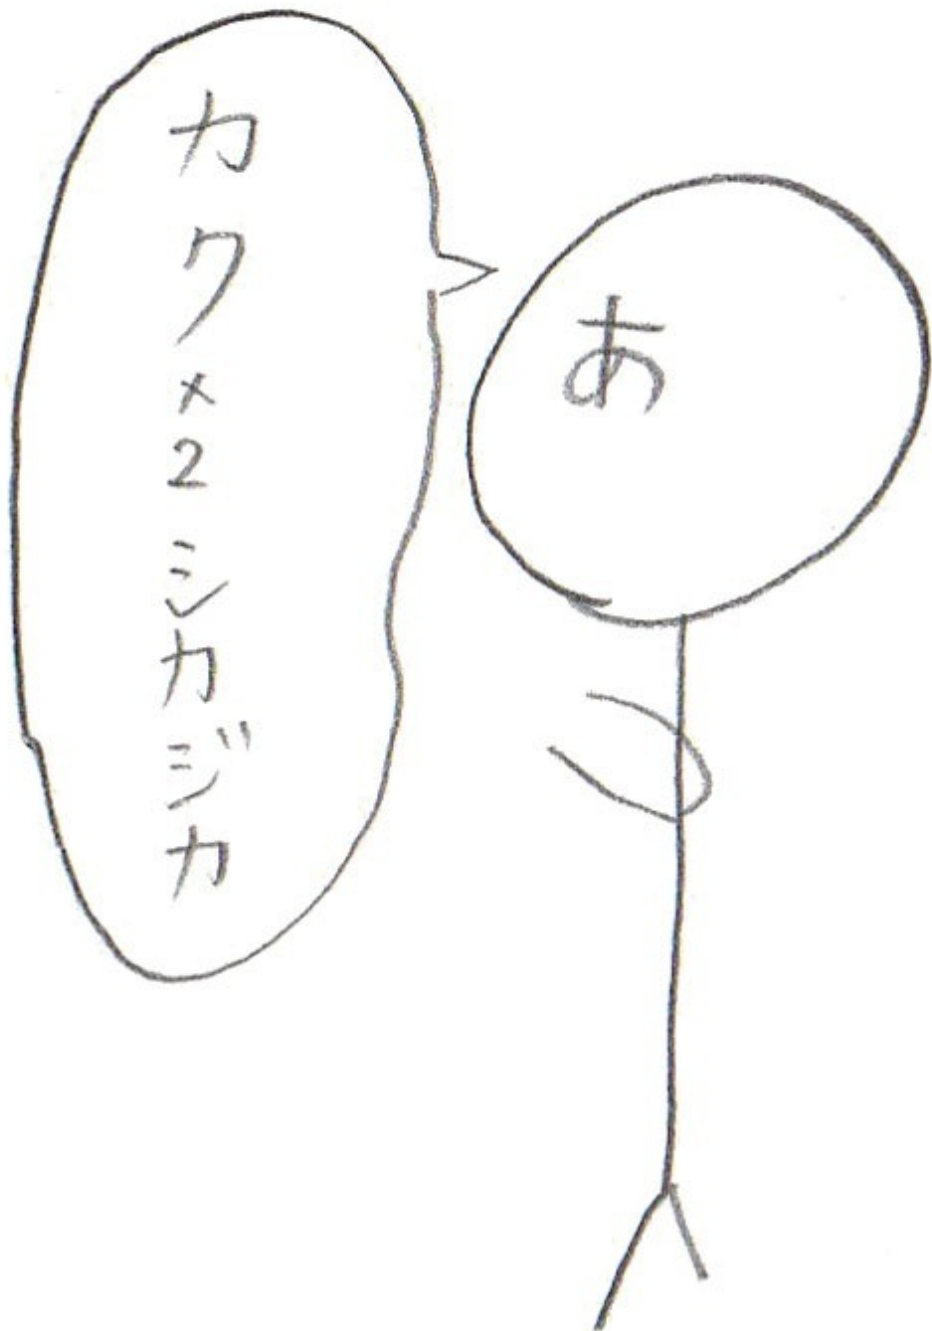 カクx2シカジカ
あ